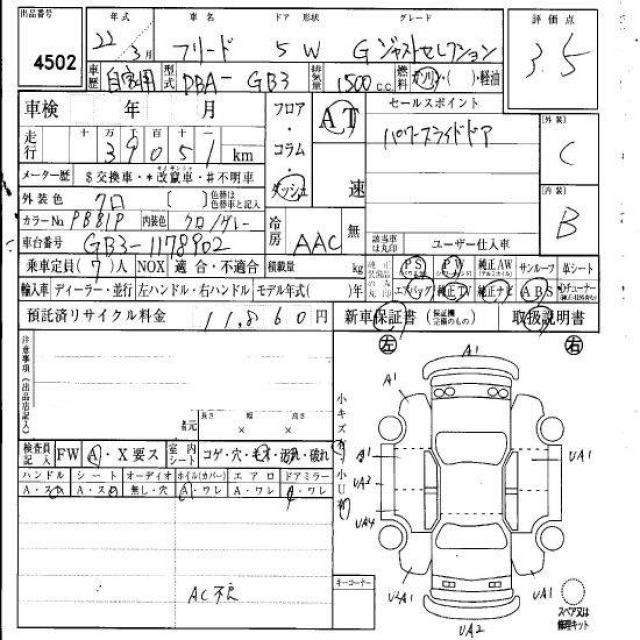 出品番号
4502
年式 車名 ドア 形状 グレード 評価点
22 3月 フリード 5 W G ジャストセレクション 3.5
車歴 自家用 型式 DBA-GB3 排気量 1500cc 燃料 ガソリン・( )・軽油
車検 年 月 フロア・コラム・ダッシュ AT 速 セールスポイント
パワースライドドア
走行 十 万 千 百 十 一
39051 km
外装 C
内装 B
メーター歴 $交換車・*改竄車・#不明車
外装色 クロ [ ] 色替は色替車と記入
カラーNo PB81P 内装色 クロ/グレー 冷房 AAC 無
車台番号 GB3-1178902 該当車は丸印 ユーザー仕入車
乗車定員(7)人 NOX 適合・不適合 積載量 kg PS PW 純正AW サンルーフ 革シート
輸入車 ディーラー・並行 左ハンドル・右ハンドル モデル年式( )年 エアバッグ 純正TV 純正ナビ ABS
預託済リサイクル料金 11,860円 新車保証書 取扱説明書
左 右
注意事項(出品店記入)
諸元 長さ × 幅 × 高さ
検査員記入 FW A・X要ス 室内シート コゲ・穴・モケ・汚れ・破れ
ハンドル シート オーディオ ホイル(カバー) エアロ ドアミラー
A・スレ A・スレ 無し・穴 A・ワレ A・ワレ A・ワレ
AC不良
小キズ有 小U有
キーコーナー
A1
A1
A1 UA1
UA3
UA4
UA1 A1
UA2
スペア又は修理キット